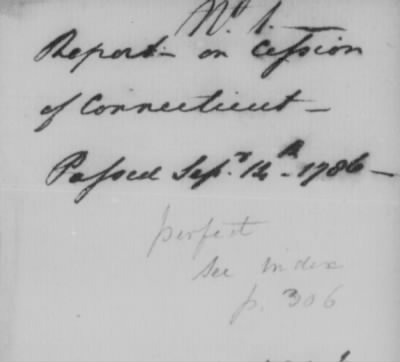 No. 1.
Report on Cession
of Connecticut
Passed Sepr. 12th 1786
perfect
see index
p. 306